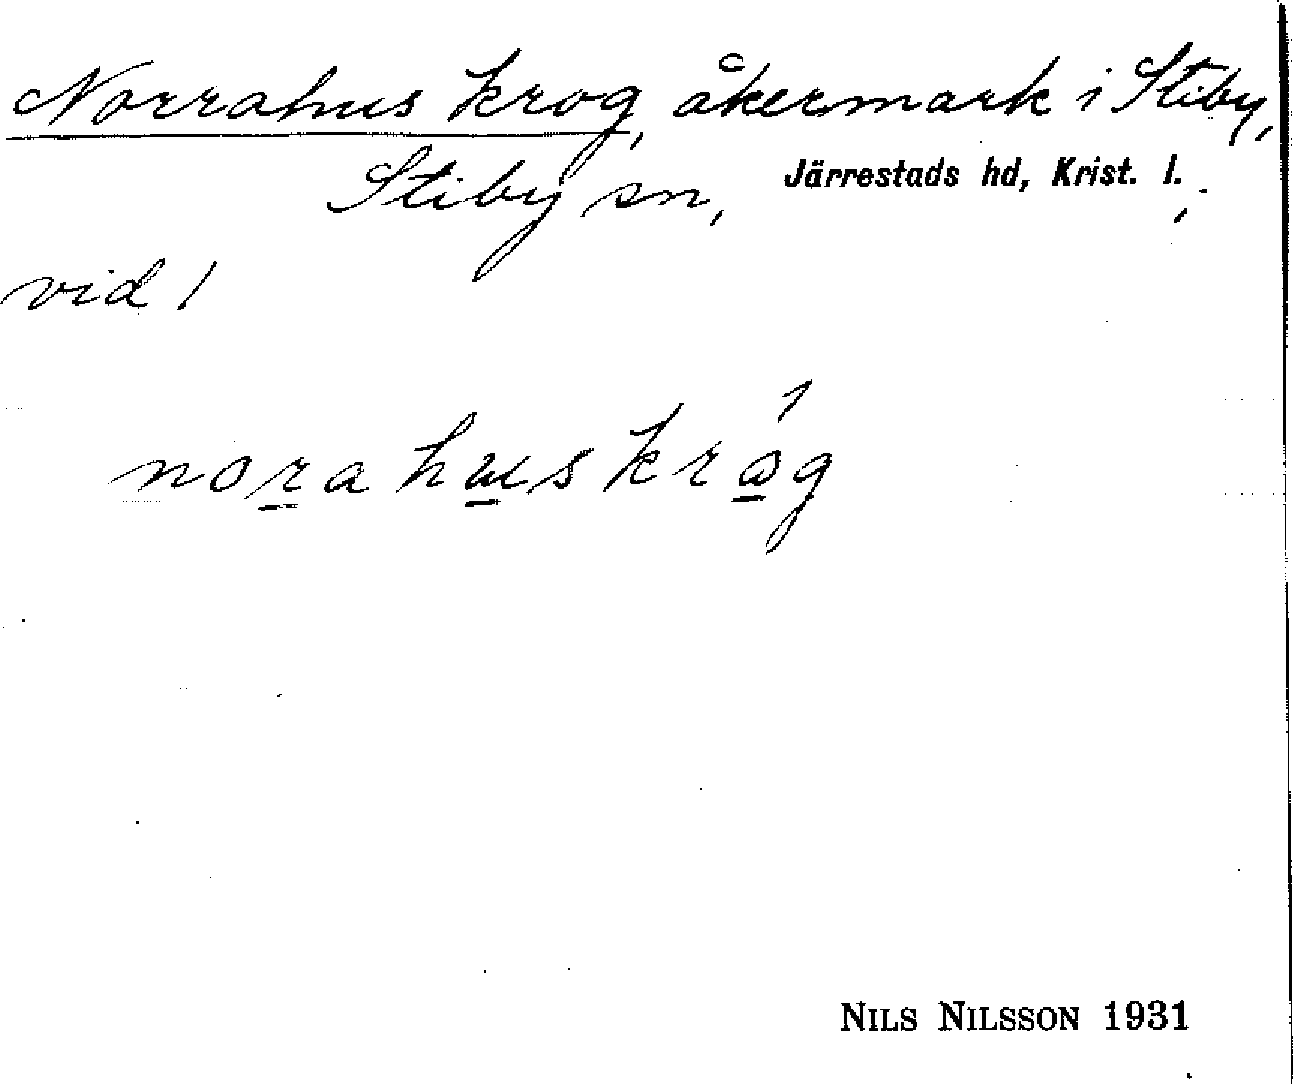 Norrahus krog, åkermark i Stiby,
Stiby sn, Järrestads hd, Krist. l.;
vid 1
norahuskróg
NILS NILSSON 1931